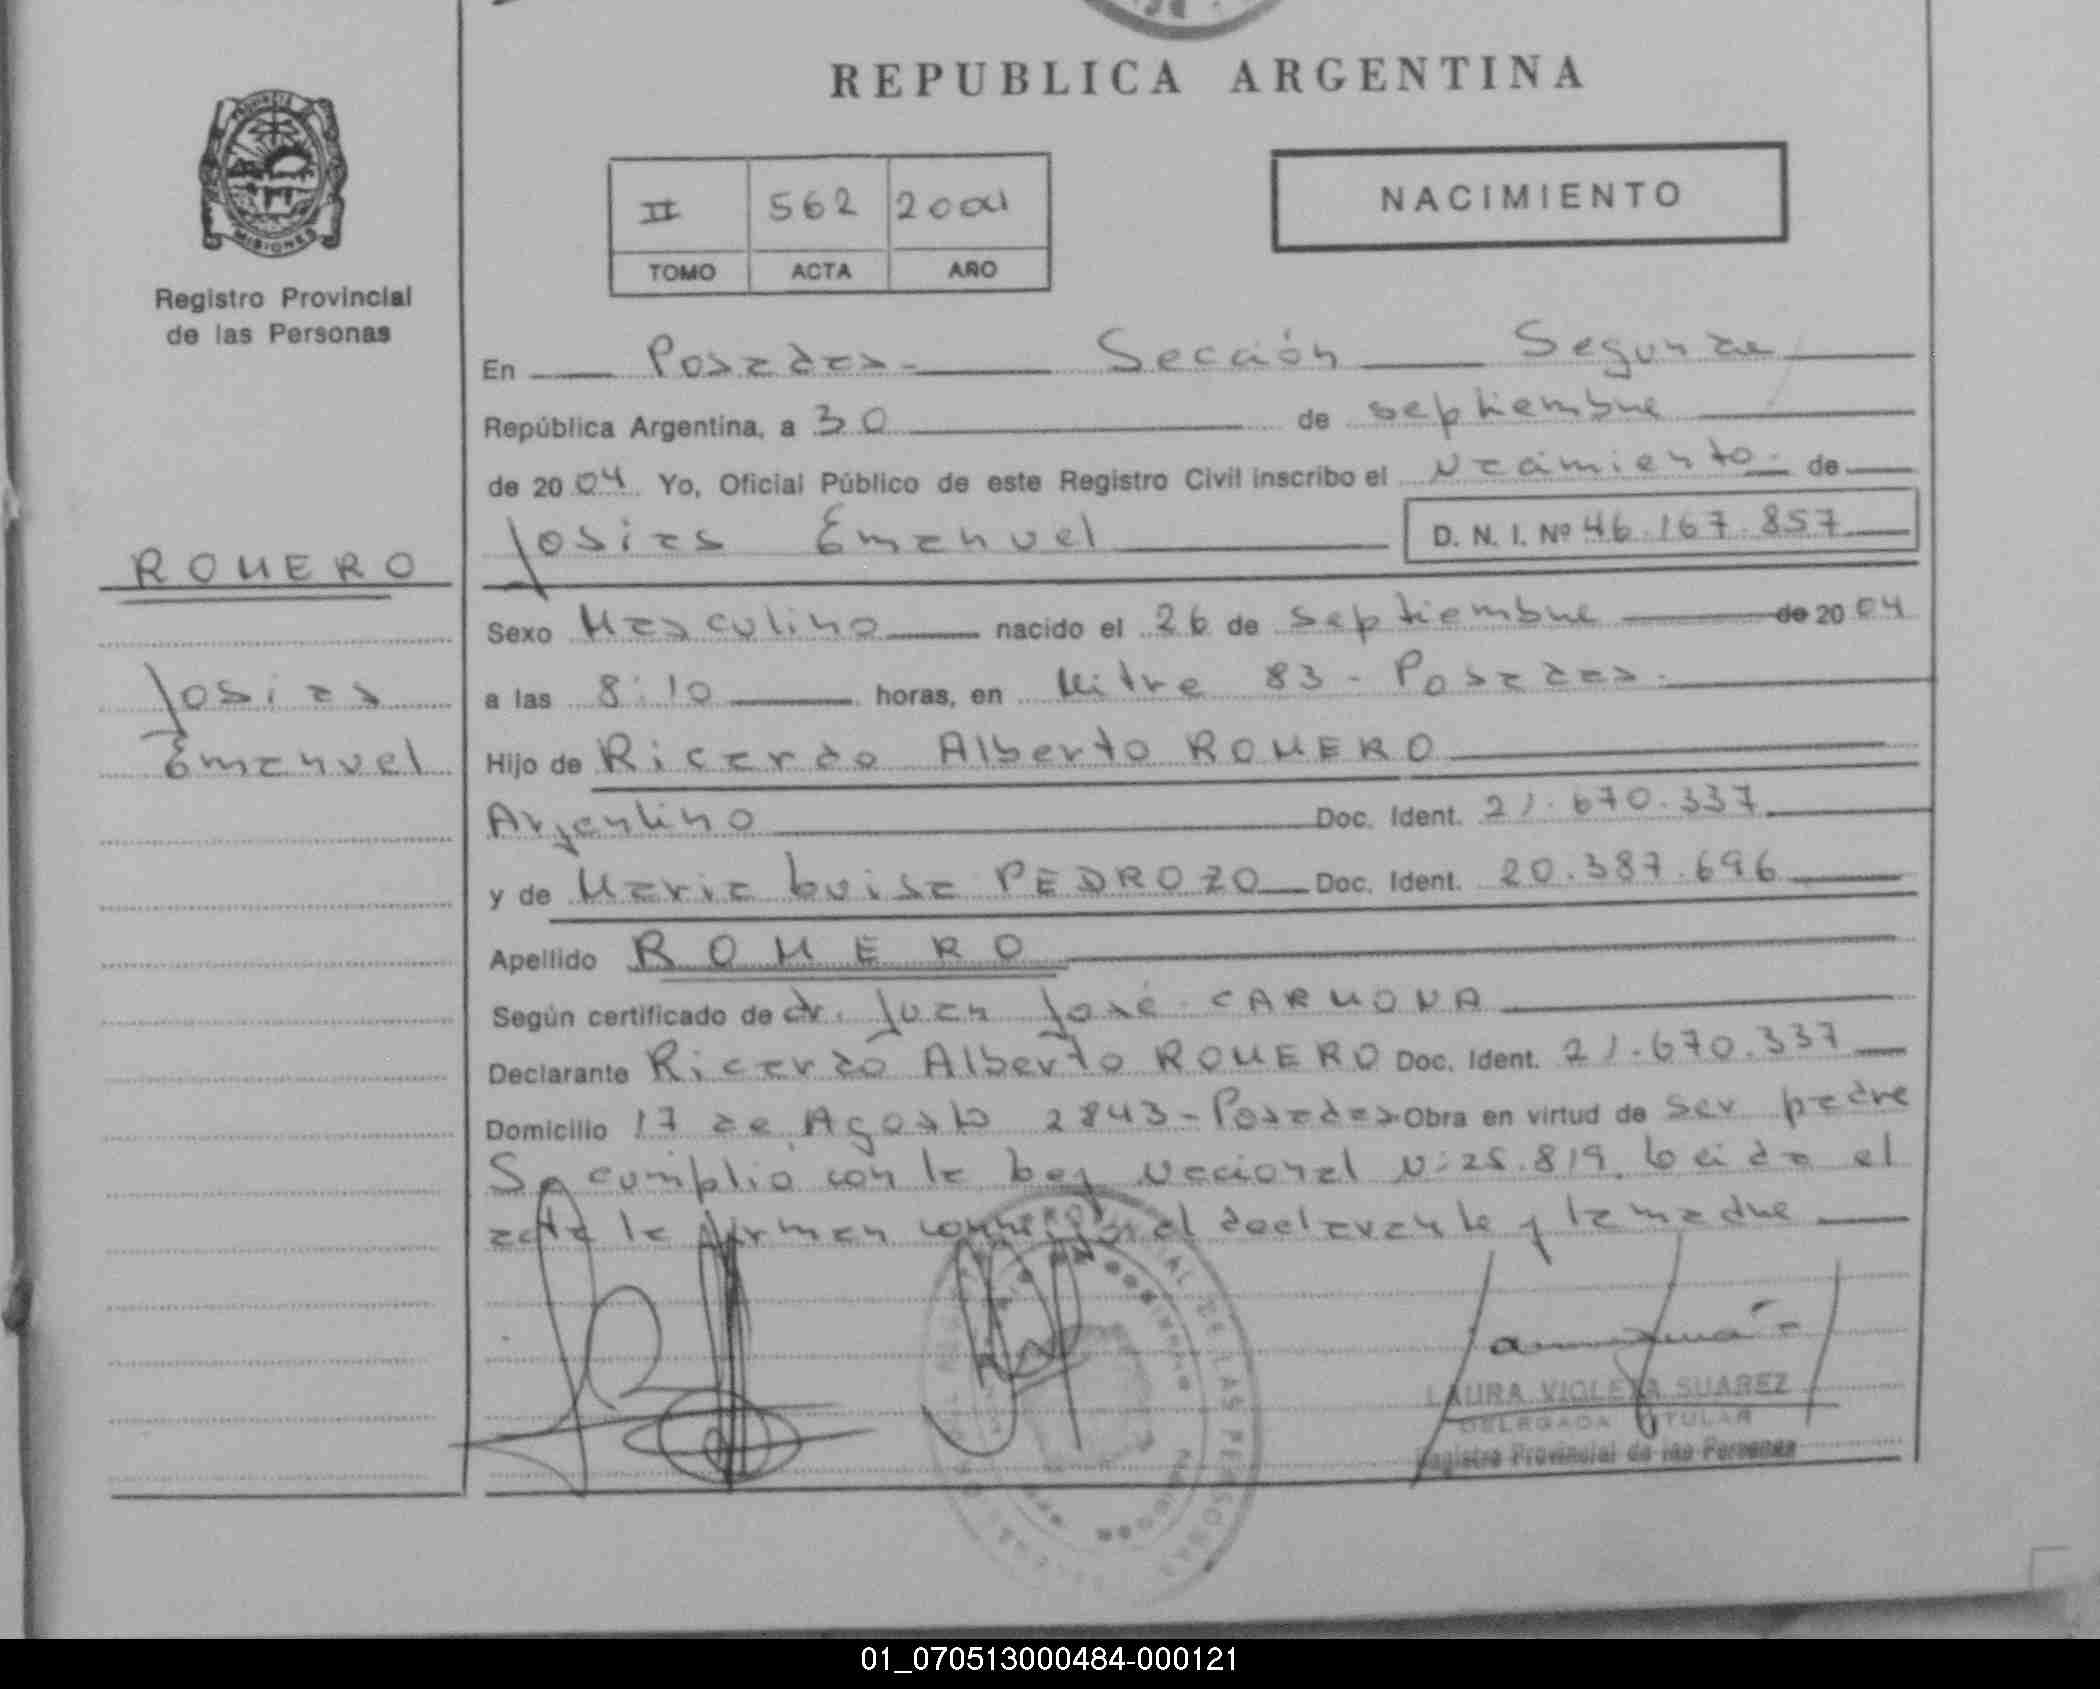 REPUBLICA ARGENTINA
PROVINCIA
MISIONES
Registro Provincial
de las Personas
II 562 2004
TOMO ACTA AÑO
NACIMIENTO
En Posadas - Sección Segunda
República Argentina, a 30 de septiembre
de 2004 Yo, Oficial Público de este Registro Civil inscribo el Nacimiento de
Josias Emanuel D. N. I. Nº 46.167.857
ROMERO
Josias
Emanuel
Sexo Masculino nacido el 26 de septiembre de 2004
a las 8:10 horas, en Mitre 83 - Posadas.
Hijo de Ricardo Alberto ROMERO
Argentino Doc. Ident. 21.670.337
y de Maria Luisa PEDROZO Doc. Ident. 20.387.696
Apellido ROMERO
Según certificado de dr. Juan José CARMONA
Declarante Ricardo Alberto ROMERO Doc. Ident. 21.670.337
Domicilio 17 de Agosto 2843 - Posadas Obra en virtud de ser padre
Se cumplió con la Ley Nacional N: 25.819. Leido el
acta la firman conmigo el declarante y la madre
LAURA VIOLETA SUAREZ
DELEGADA TITULAR
Registro Provincial de las Personas
01_070513000484-000121